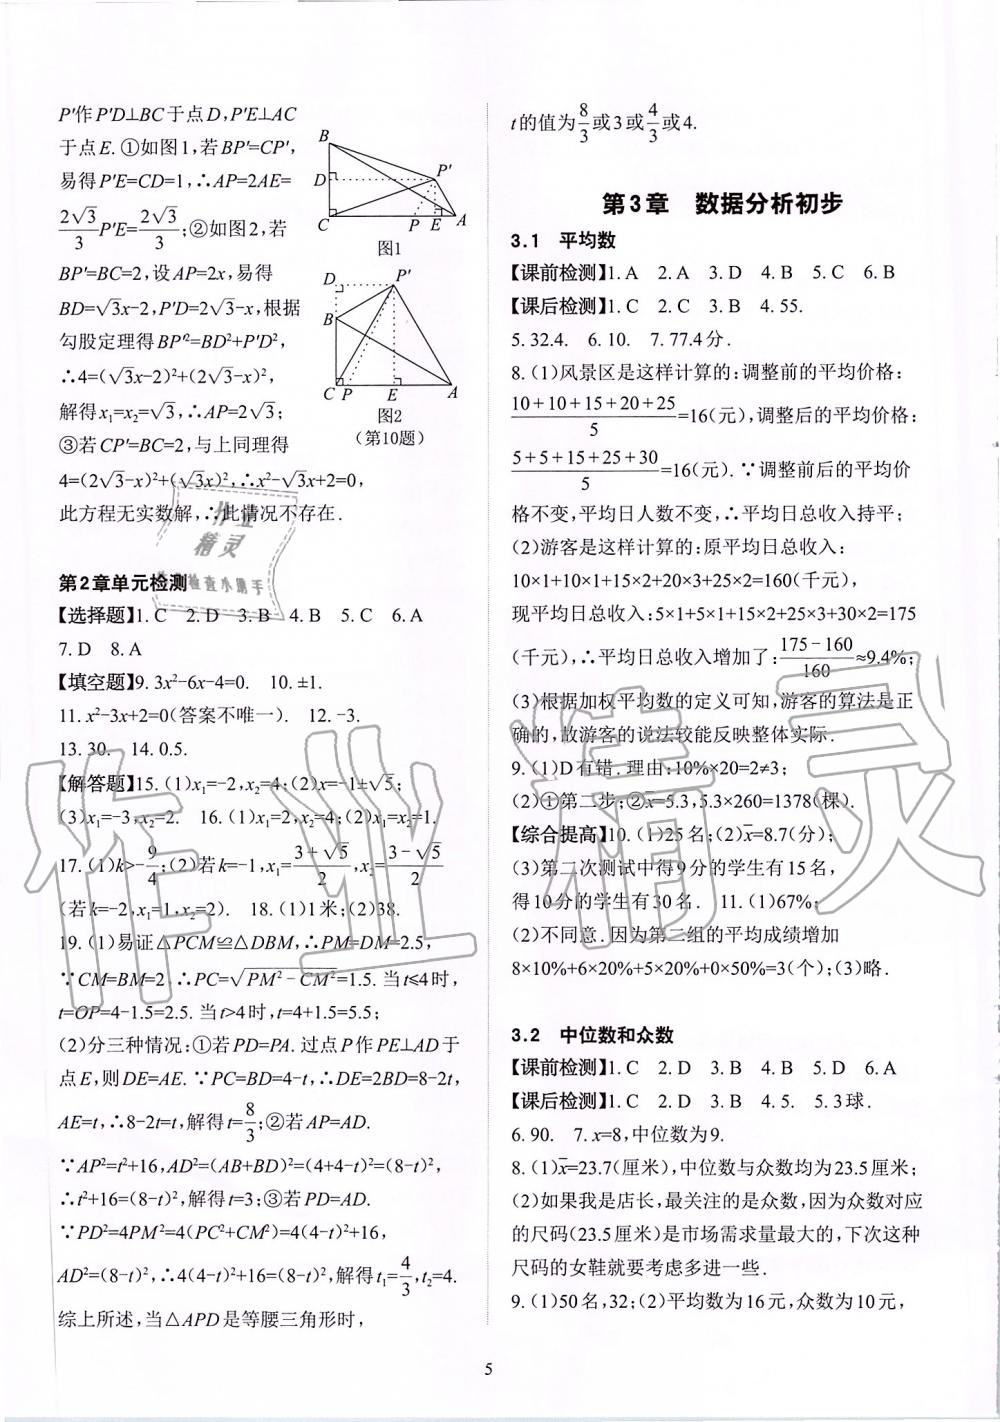 P′作P′D⊥BC于点D,P′E⊥AC
于点E.①如图1,若BP′=CP′,
易得P′E=CD=1,∴AP=2AE=
2√3/3 P′E=2√3/3;②如图2,若
BP′=BC=2,设AP=2x,易得
BD=√3x-2,P′D=2√3-x,根据
勾股定理得BP′²=BD²+P′D²,
∴4=(√3x-2)²+(2√3-x)²,
解得x₁=x₂=√3,∴AP=2√3;
③若CP′=BC=2,与上同理得
4=(2√3-x)²+(√3x)²,∴x²-√3x+2=0,
此方程无实数解,∴此情况不存在.
B
D
C
P′
P E A
图1
D
P′
B
C P E A
图2
(第10题)
第2章单元检测
【选择题】1.C 2.D 3.B 4.B 5.C 6.A
7.D 8.A
【填空题】9.3x²-6x-4=0. 10.±1.
11.x²-3x+2=0(答案不唯一). 12.-3.
13.30. 14.0.5.
【解答题】15.(1)x₁=-2,x₂=4;(2)x=-1±√5;
(3)x₁=-3,x₂=2. 16.(1)x₁=2,x₂=4;(2)x₁=x₂=1.
17.(1)k>-9/4;(2)若k=-1,x₁=(3+√5)/2,x₂=(3-√5)/2
(若k=-2,x₁=1,x₂=2). 18.(1)1米;(2)38.
19.(1)易证△PCM≌△DBM,∴PM=DM=2.5,
∵CM=BM=2,∴PC=√(PM²-CM²)=1.5.当t≤4时,
t=OP=4-1.5=2.5.当t>4时,t=4+1.5=5.5;
(2)分三种情况:①若PD=PA.过点P作PE⊥AD于
点E,则DE=AE.∵PC=BD=4-t,∴DE=2BD=8-2t,
AE=t,∴8-2t=t,解得t=8/3;②若AP=AD.
∵AP²=t²+16,AD²=(AB+BD)²=(4+4-t)²=(8-t)²,
∴t²+16=(8-t)²,解得t=3;③若PD=AD.
∵PD²=4PM²=4(PC²+CM²)=4(4-t)²+16,
AD²=(8-t)²,∴4(4-t)²+16=(8-t)²,解得t₁=4/3,t₂=4.
综上所述,当△APD是等腰三角形时,
t的值为8/3或3或4/3或4.
第3章 数据分析初步
3.1 平均数
【课前检测】1.A 2.A 3.D 4.B 5.C 6.B
【课后检测】1.C 2.C 3.B 4.55.
5.32.4. 6.10. 7.77.4分.
8.(1)风景区是这样计算的:调整前的平均价格:
(10+10+15+20+25)/5=16(元),调整后的平均价格:
(5+5+15+25+30)/5=16(元).∵调整前后的平均价
格不变,平均日人数不变,∴平均日总收入持平;
(2)游客是这样计算的:原平均日总收入:
10×1+10×1+15×2+20×3+25×2=160(千元),
现平均日总收入:5×1+5×1+15×2+25×3+30×2=175
(千元),∴平均日总收入增加了:(175-160)/160≈9.4%;
(3)根据加权平均数的定义可知,游客的算法是正
确的,故游客的说法较能反映整体实际.
9.(1)D有错.理由:10%×20=2≠3;
(2)①第二步;②x̄=5.3,5.3×260=1378(棵).
【综合提高】10.(1)25名;(2)x̄=8.7(分);
(3)第二次测试中得9分的学生有15名,
得10分的学生有30名. 11.(1)67%;
(2)不同意.因为第二组的平均成绩增加
8×10%+6×20%+5×20%+0×50%=3(个);(3)略.
3.2 中位数和众数
【课前检测】1.C 2.D 3.B 4.D 5.D 6.A
【课后检测】1.C 2.D 3.B 4.5. 5.3球.
6.90. 7.x=8,中位数为9.
8.(1)x̄=23.7(厘米),中位数与众数均为23.5厘米;
(2)如果我是店长,最关注的是众数,因为众数对应
的尺码(23.5厘米)是市场需求量最大的,下次这种
尺码的女鞋就要考虑多进一些.
9.(1)50名,32;(2)平均数为16元,众数为10元,
5
作业精灵
作业
精灵
作业检查小助手